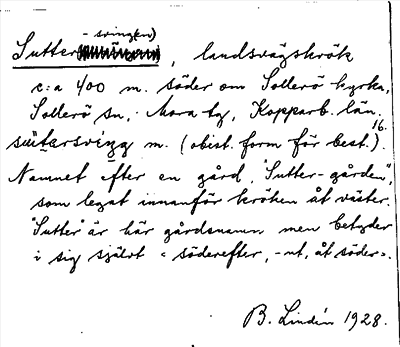 - sving(en)
Sutter , landsvägskrök
c:a 400 m. söder om Sollerö kyrka,
Sollerö sn, Mora tg, Kopparb. län.
16.
sútarsviŋg m. (obest. form för best.).
Namnet efter en gård, "Sutter-gården",
som legat innanför kröken åt väster.
"Sutter" är här gårdsnamn men betyder
i sig självt "söderefter, -ut, åt söder".
B. Lindén 1928.